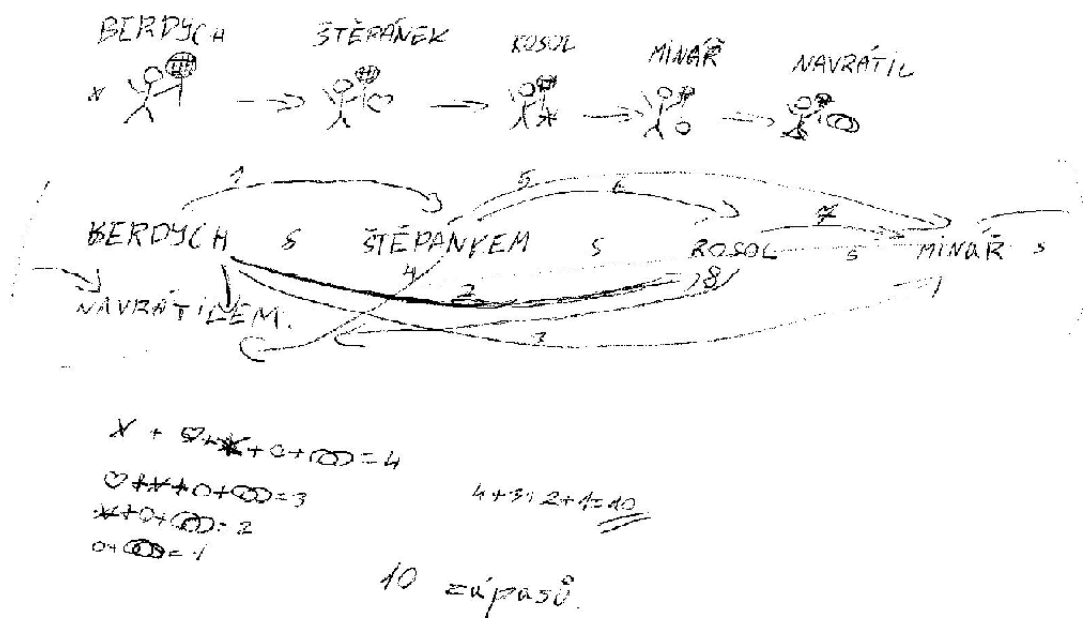 BERDYCH ŠTĚPÁNEK ROSOL MINÁŘ NAVRÁTIL
x
1 5 6 7
BERDYCH S ŠTĚPÁNKEM S ROSOL S MINAŘ S
4 2 8
NAVRÁTILEM.
3
X + ♡+*+O+ =4
♡+*+O+ =3
*+O+ =2
O+ =1
4+3+2+1=10
10 zápasů.